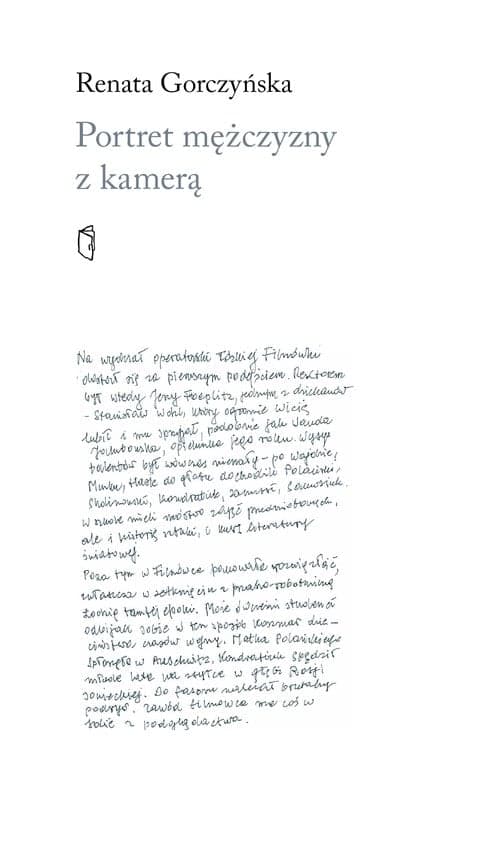 Renata Gorczyńska
Portret mężczyzny
z kamerą
Na wydział operatorski łódzkiej Filmówki
dostał się za pierwszym podejściem. Rektorem
był wtedy Jerzy Toeplitz, jednym z dziekanów
– Stanisław Wohl, który ogromnie Wicię
lubił i mu sprzyjał, podobnie jak Wanda
Jakubowska, opiekunka jego roku. Wysyp
talentów był wówczas niemały – po Wajdzie,
Munku, Hasie do głosu dochodzili Polański,
Skolimowski, Kondratiuk, Zanussi,
W szkole mieli mnóstwo zajęć przedmiotowych,
ale i historię sztuki, i kurs literatury
światowej.
Poza tym w Filmówce panowało rozwiązłość,
zwłaszcza w zetknięciu z prasko-robotniczą
Łodzią tamtej epoki. Może ówcześni studenci
odbijali sobie w ten sposób koszmar dzie–
ciństwa czasów wojny. Matka Polańskiego
spłonęła w Auschwitz, Kondratiuk spędził
młode lata na zsyłce w głębi Rosji
sowieckiej. Do fasonu należał brutalny
podryw. Zawód filmowca ma coś w
sobie z podglądactwa.